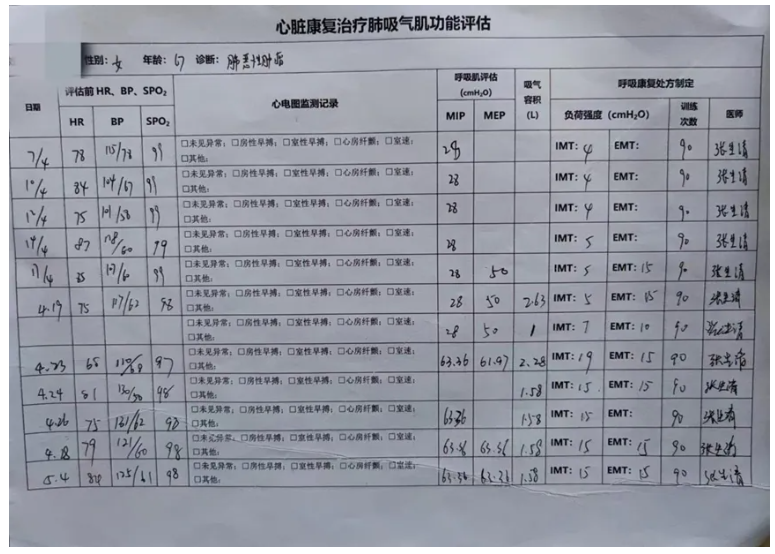 心脏康复治疗肺吸气肌功能评估
性别：女 年龄：67 诊断：肺恶性肿瘤
日期 评估前 HR、BP、SPO₂ 心电图监测记录 呼吸肌评估 (cmH₂O) 吸气容积 (L) 呼吸康复处方制定
HR BP SPO₂ MIP MEP 负荷强度（cmH₂O） 训练次数 医师
7/4 78 115/78 99 □未见异常；□房性早搏；□室性早搏；□心房纤颤；□室速； 28 IMT：4 EMT： 90 张生清
□其他：
10/4 84 104/67 99 □未见异常；□房性早搏；□室性早搏；□心房纤颤；□室速； 28 IMT：4 EMT： 90 张生清
□其他：
12/4 75 101/58 99 □未见异常；□房性早搏；□室性早搏；□心房纤颤；□室速； 28 IMT：4 EMT： 90 张生清
□其他：
14/4 87 118/60 99 □未见异常；□房性早搏；□室性早搏；□心房纤颤；□室速； 28 IMT：5 EMT： 90 张生清
□其他：
17/4 99 □未见异常；□房性早搏；□室性早搏；□心房纤颤；□室速； 28 50 IMT：5 EMT：15 90 张生清
□其他：
4.19 75 117/62 98 □未见异常；□房性早搏；□室性早搏；□心房纤颤；□室速； 28 50 2.63 IMT：5 EMT：15 90 张生清
□其他：
□未见异常；□房性早搏；□室性早搏；□心房纤颤；□室速； 28 50 1 IMT：7 EMT：10 90 张生清
□其他：
4.23 68 97 □未见异常；□房性早搏；□室性早搏；□心房纤颤；□室速； 63.36 61.97 2.28 IMT：19 EMT：15 90 张生清
□其他：
4.24 81 130/50 98 □未见异常；□房性早搏；□室性早搏；□心房纤颤；□室速； 1.58 IMT：15 EMT：15 90 张生清
□其他：
4.26 75 131/62 98 □未见异常；□房性早搏；□室性早搏；□心房纤颤；□室速； 63.36 1.58 IMT：15 EMT： 90 张生清
□其他：
4.28 79 121/60 98 □未见异常；□房性早搏；□室性早搏；□心房纤颤；□室速； 63.36 63.36 1.58 IMT：15 EMT：15 90 张生清
□其他：
5.4 84 125/61 98 □未见异常；□房性早搏；□室性早搏；□心房纤颤；□室速； 63.36 63.36 1.58 IMT：15 EMT：15 90 张生清
□其他：